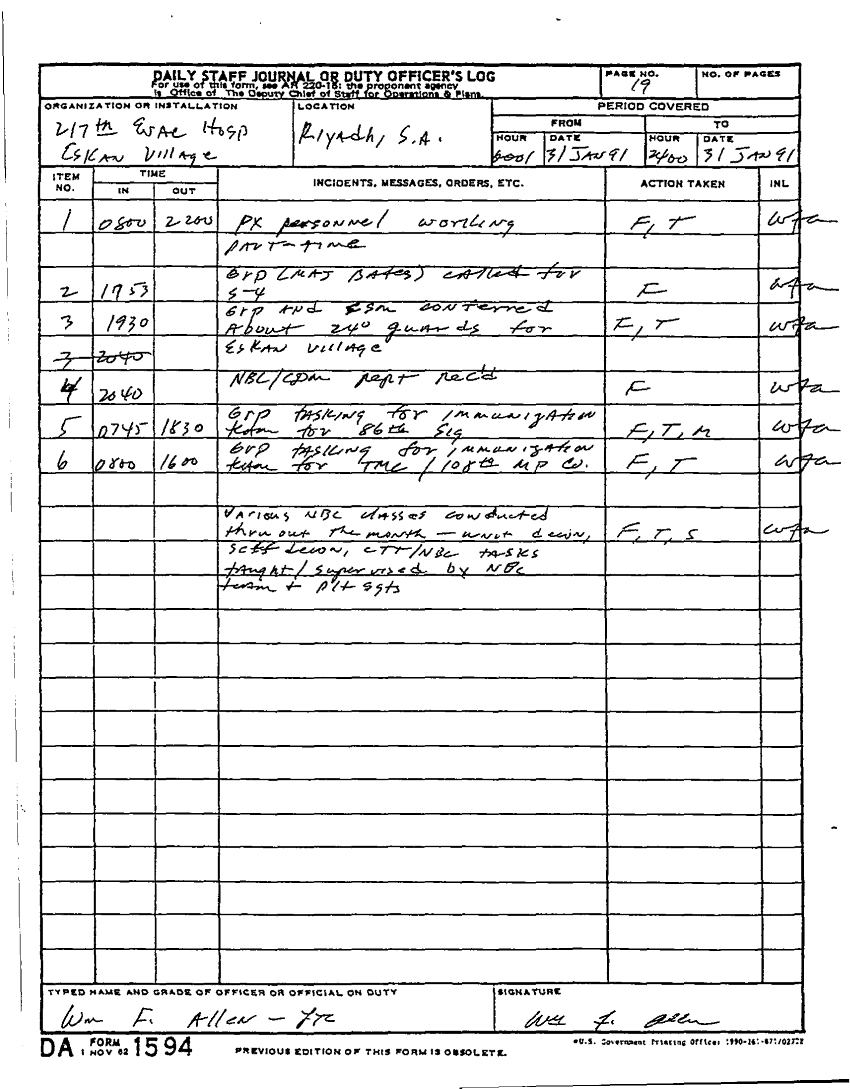 DAILY STAFF JOURNAL OR DUTY OFFICER'S LOG
For use of this form, see AR 220-15; the proponent agency
is Office of The Deputy Chief of Staff for Operations & Plans.
PAGE NO.
19
NO. OF PAGES
ORGANIZATION OR INSTALLATION
217th Evac Hosp
Eskan Village
LOCATION
Riyadh, S.A.
PERIOD COVERED
FROM TO
HOUR DATE HOUR DATE
0001 31 JAN 91 2400 31 JAN 91
ITEM NO. TIME IN OUT INCIDENTS, MESSAGES, ORDERS, ETC. ACTION TAKEN INL
1 0800 2200 PX personnel working F, T wfa
part-time
Grp (MAJ Bates) called for
2 1953 S-4 F wfa
Grp and CSM conferred
3 1930 About 240 guards for F, T wfa
3 2040 Eskan Village
4 2040 NBC/CDM rept rec'd F wfa
Grp tasking for immunization
5 0745 1830 team for 86th Sig F, T, M wfa
Grp tasking for immunization
6 0800 1600 team for TMC / 108th MP Co. F, T wfa
Various NBC classes conducted
thru out the month – unit decon, F, T, S wfa
self decon, CTT/NBC tasks
taught/supervised by NBC
team + plt sgts
TYPED NAME AND GRADE OF OFFICER OR OFFICIAL ON DUTY
Wm F. Allen –
SIGNATURE
Wm F. Allen
DA FORM 1 NOV 62 1594
PREVIOUS EDITION OF THIS FORM IS OBSOLETE.
*U.S. Government Printing Office: 1990-261-871/02722